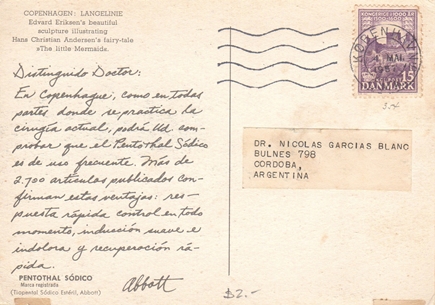 COPENHAGEN: LANGELINIE
Edvard Eriksen's beautiful
sculpture illustrating
Hans Christian Andersen's fairy-tale
»The little Mermaid».
Distinguido Doctor:
En Copenhague, como en todas
partes donde se practica la
cirugía actual, podrá Ud. com-
probar que el Pentothal Sódico
es de uso frecuente. Más de
2.700 artículos publicados con-
firman estas ventajas: res-
puesta rápida control en todo
momento, inducción suave e
indolora y recuperación rá-
pida.
Abbott
PENTOTHAL SÓDICO
Marca registrada
(Tiopental Sódico Estéril, Abbott)
KØBENHAVN
MAI
15
DANMARK
DR. NICOLAS GARCIAS BLANC
BULNES 798
CORDOBA,
ARGENTINA
$2.-